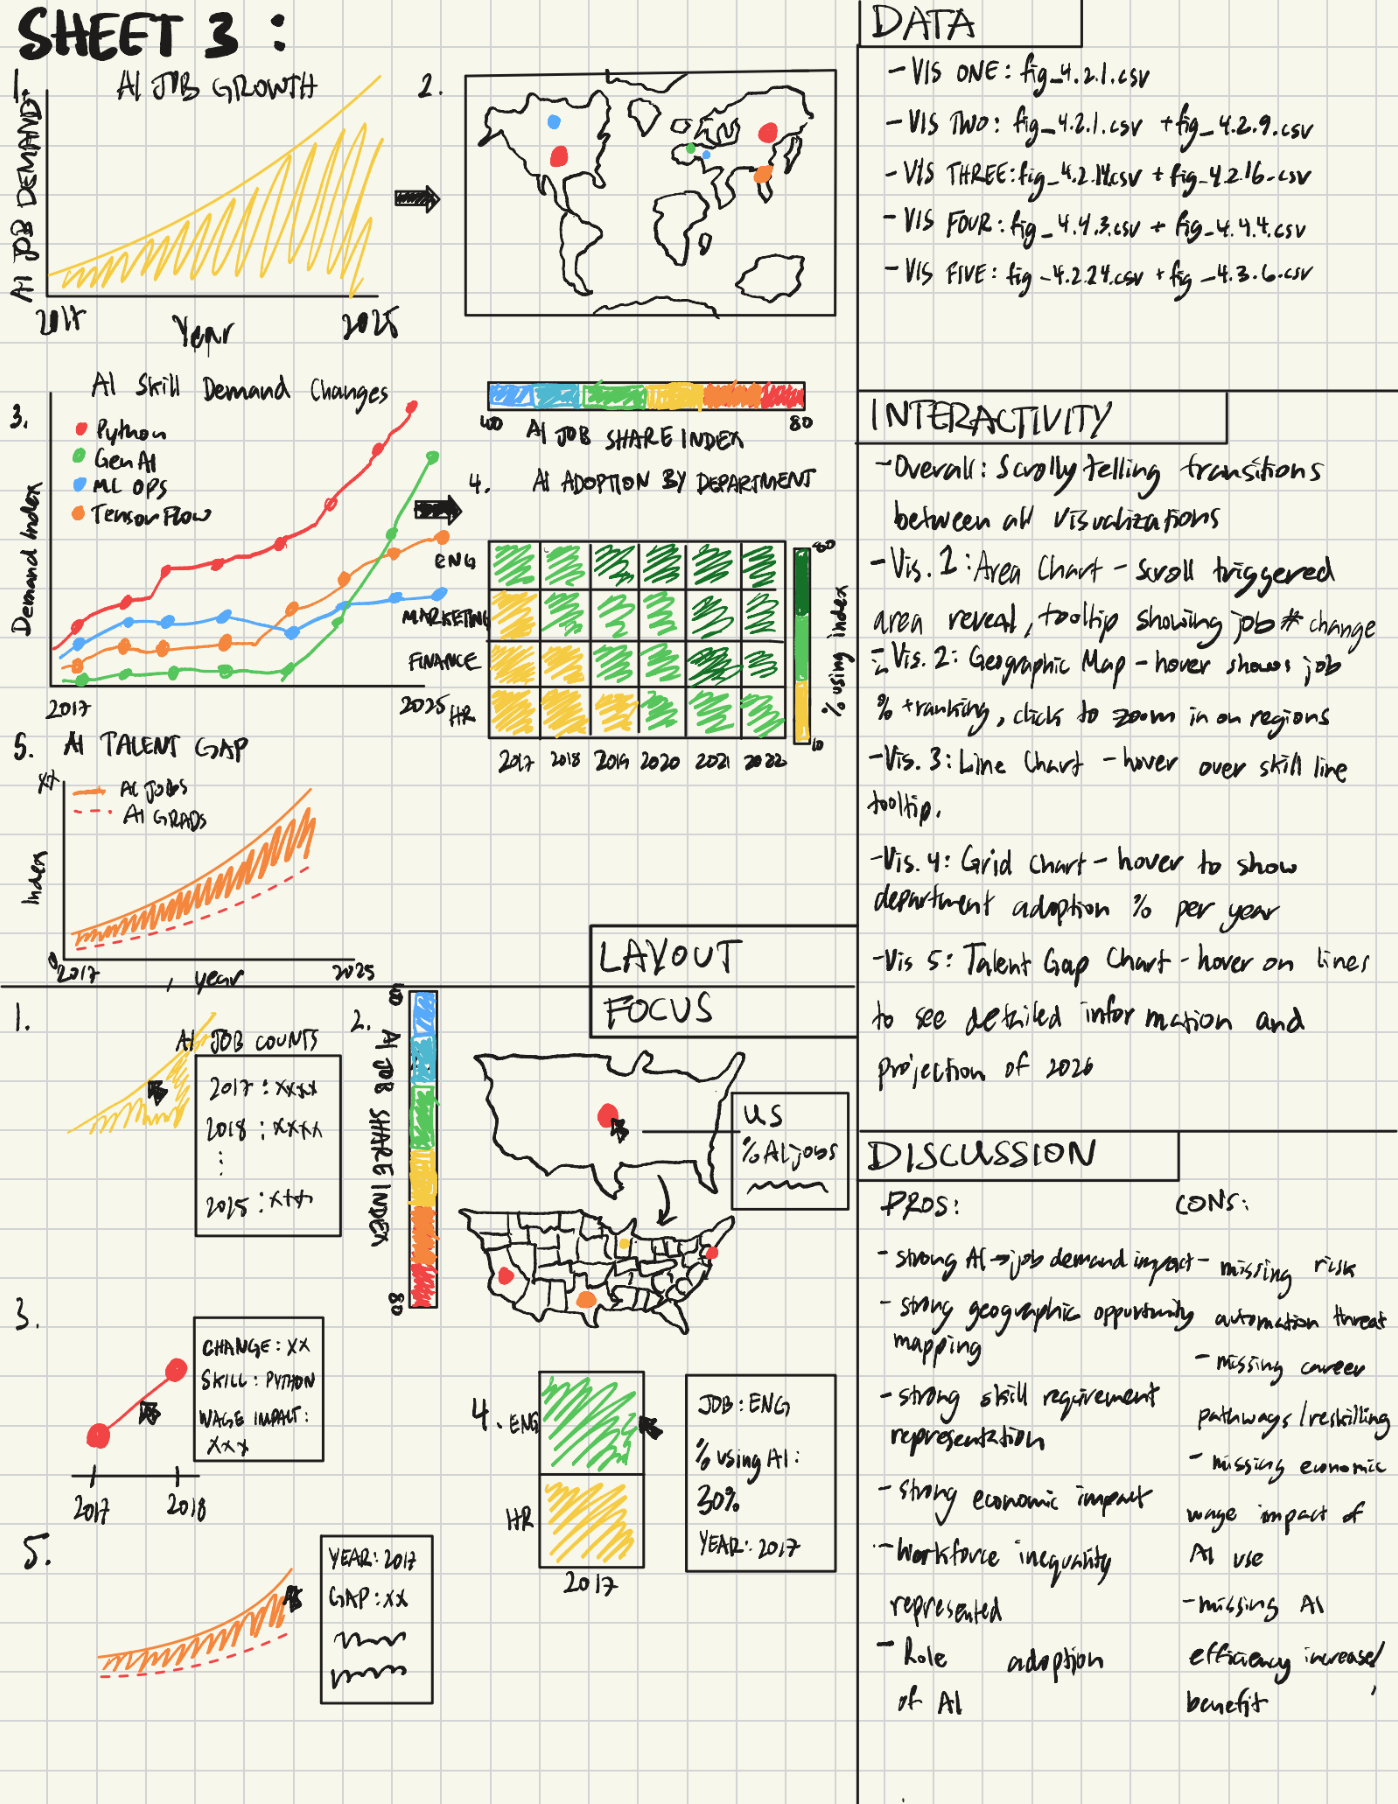 SHEET 3 :
1.
AI JOB GROWTH
AI JOB DEMAND
2017
Year
2025
2.
40
80
AI JOB SHARE INDEX
3.
AI Skill Demand Changes
Python
GenAI
ML OPS
TensorFlow
Demand Index
2017
2025
4.
AI ADOPTION BY DEPARTMENT
ENG
MARKETING
FINANCE
HR
2017 2018 2019 2020 2021 2022
80
% using index
10
5. AI TALENT GAP
AI JOBS
AI GRADS
Index
0
2017
, year
2025
LAYOUT
FOCUS
1.
AI JOB COUNTS
2017 : xxxx
2018 : xxxx
2025 : xxx
2.
40
AI JOB SHARE INDEX
80
US
% AI jobs
3.
CHANGE: XX
SKILL: PYTHON
WAGE IMPACT:
XXX
2017
2018
4.
ENG
HR
2017
JOB: ENG
% using AI:
30%
YEAR: 2017
5.
YEAR: 2017
GAP: XX
DATA
- VIS ONE: fig_4.2.1.csv
- VIS TWO: fig_4.2.1.csv + fig_4.2.9.csv
- VIS THREE: fig_4.2.14.csv + fig_4.2.16.csv
- VIS FOUR: fig_4.4.3.csv + fig_4.4.4.csv
- VIS FIVE: fig_4.2.24.csv + fig_4.3.6.csv
INTERACTIVITY
- Overall: Scrollytelling transitions
between all visualizations
- Vis. 1: Area Chart - Scroll triggered
area reveal, tooltip showing job # change
- Vis. 2: Geographic Map - hover shows job
% + ranking, click to zoom in on regions
- Vis. 3: Line Chart - hover over skill line
tooltip.
- Vis. 4: Grid Chart - hover to show
department adoption % per year
- Vis 5: Talent Gap Chart - hover on lines
to see detailed information and
projection of 2026
DISCUSSION
PROS:
- strong AI → job demand impact
- strong geographic opportunity
mapping
- strong skill requirement
representation
- strong economic impact
- Workforce inequality
represented
- Role adoption
of AI
CONS:
- missing risk
automation threat
- missing career
pathways/reskilling
- missing economic
wage impact of
AI use
- missing AI
efficiency increase/
benefit